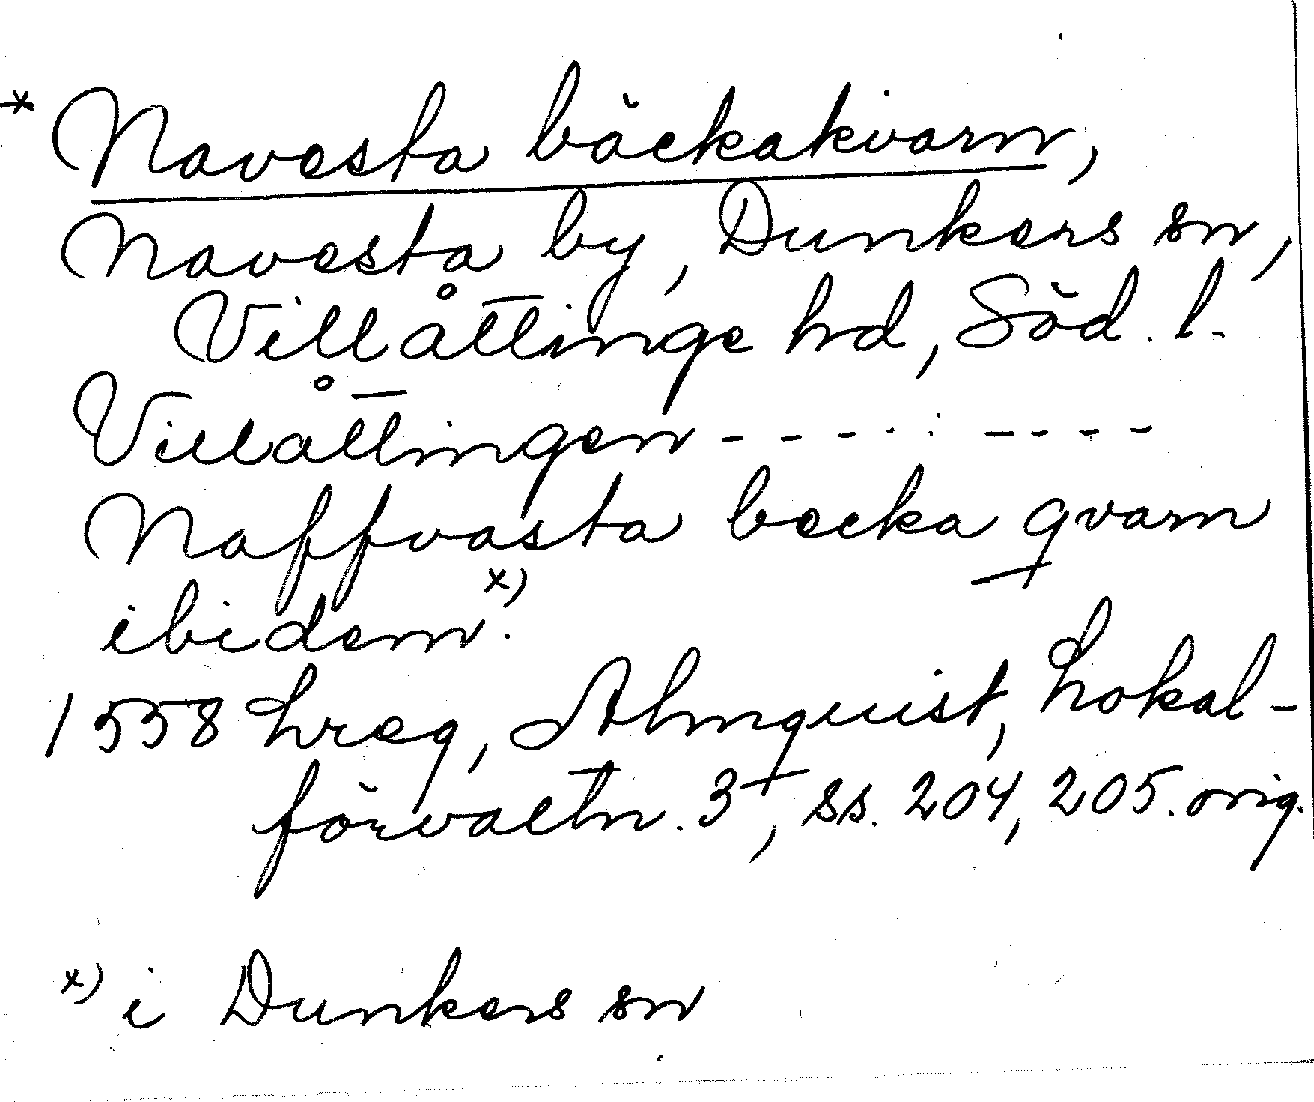 * Navesta bäckakvarn,
Navesta by, Dunkers sn,
Villåttinge hd, Söd. l.
Villåttingen - - - - - - - - -
Naffvasta becka qvarn
ibidem x).
1558 Lreg, Almquist, Lokal-
förvaltn. 3, ss. 204, 205. orig.
x) i Dunkers sn